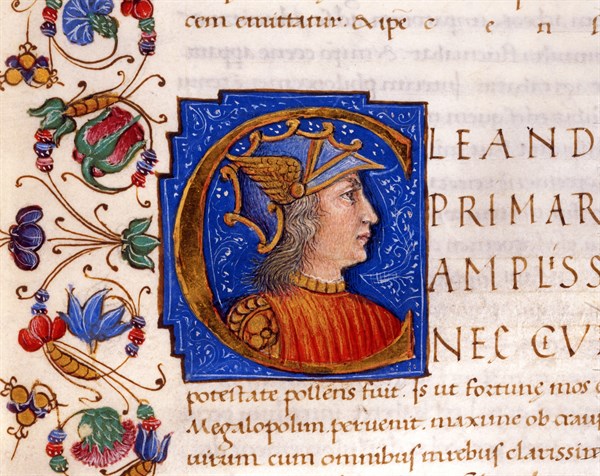 cem emittatur. & ipe c e n
CLEAND
PRIMAR
AMPLISS
NEC CV
potestate pollens fuit. Is ut fortune mos
Megalopolim peruenit. maxime ob
uirum cum omnibus in rebus clarissim